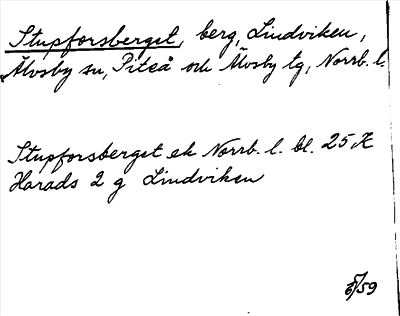 Stupforsberget, berg, Lindviken,
Älvsby sn, Piteå och Älvsby tg, Norrb. l.
Stupforsberget ek Norrb. l. bl. 25 K
Harads 2 g Lindviken
5/6 59